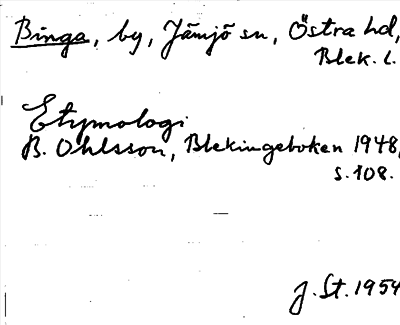 Binga, by, Jämjö sn, Östra hd,
Blek. l.
Etymologi
B. Ohlsson, Blekingeboken 1948,
s. 108.
J. St. 1954